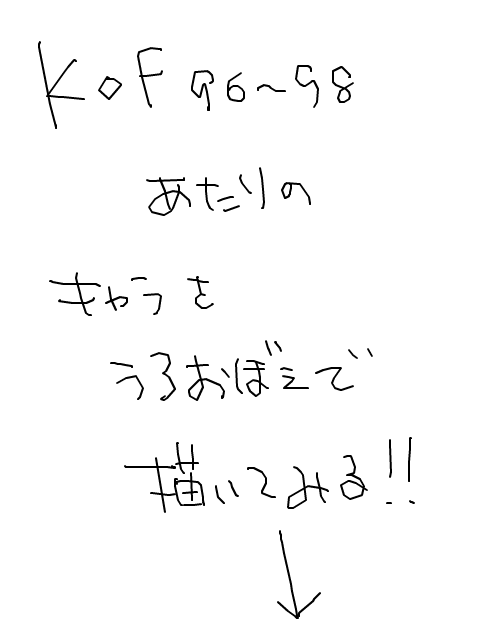 KOF 96~98
あたりの
キャラを
うろおぼえで
描いてみる!!